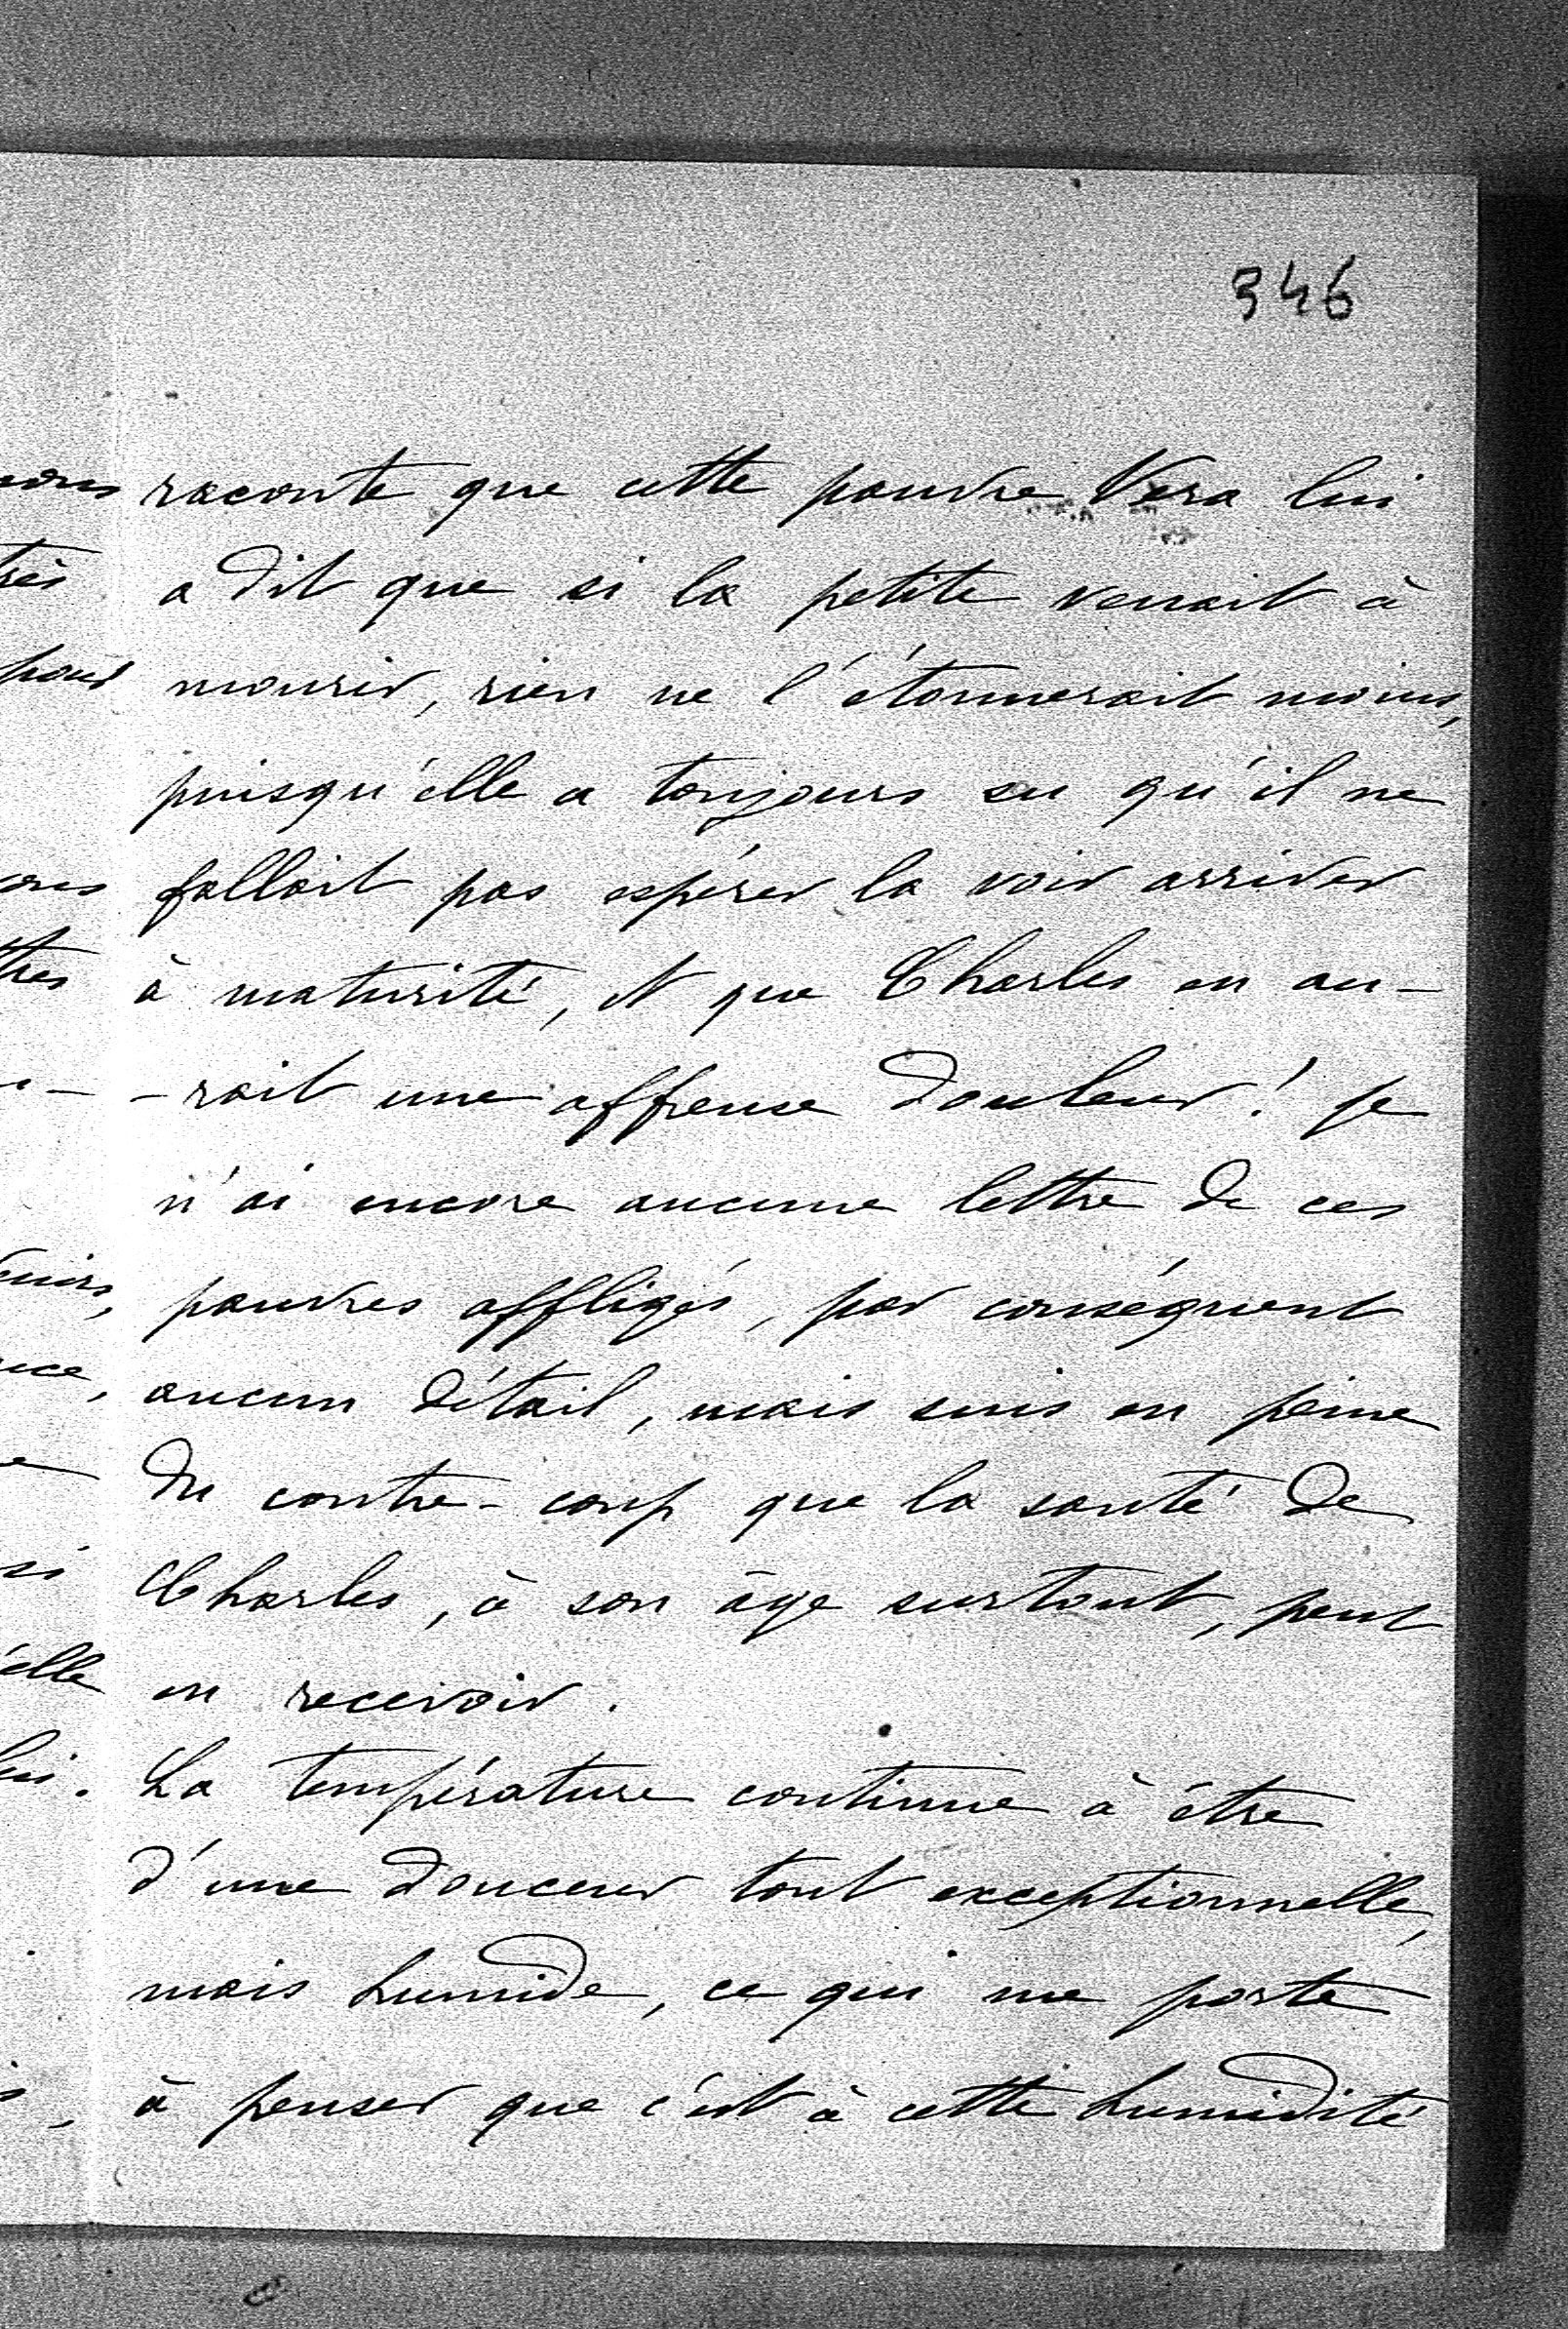 346
raconte que cette pauvre Vera lui
a dit que si la petite venait à
mourir, rien ne l'étonnerait moins,
puisqu'elle a toujours su qu'il ne
fallait pas espérer la voir arriver
à maturité, et que Charles en au-
-rait une affreuse douleur! je
n'ai encore aucune lettre de ces
pauvres affligés, par conséquent
aucun détail, mais suis en peine
du contre-coup que la santé de
Charles, à son âge surtout, peut
en recevoir.
La température continue à être
d'une douceur tout exceptionnelle,
mais humide, ce qui me porte
à penser que c'est à cette humidité